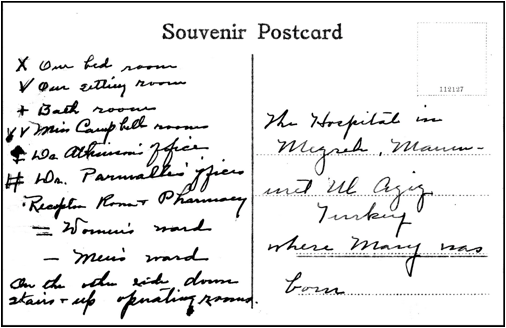 Souvenir Postcard
112127
X Our bed room
√ Our sitting room
+ Bath room
√√ Miss Campbell rooms
Dr. Atkinson's office
# Dr. Parmalle's offices
· Reception Room + Pharmacy
= Women's ward
- Men's ward
On the other side down
stairs + up operating rooms.
The Hospital in
Mezreh, Mamu-
uret Ul Aziz,
Turkey
where Mary was
born